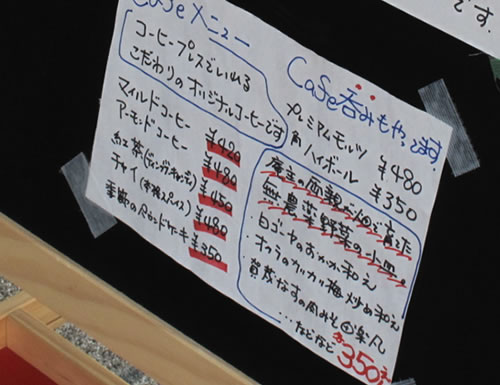 です。
Cafeメニュー
コーヒープレスでいれる
こだわりのオリジナルコーヒーです
マイルドコーヒー ¥420
アーモンドコーヒー ¥480
紅茶 ¥450
チャイ(本格スパイス) ¥480
季節のパウンドケーキ ¥350
Cafe呑みもやってます
プレミアムモルツ ¥480
角ハイボール ¥350
店主の両親が畑で育てた
無農薬野菜の小皿。
・白ゴーヤのおかか和え
・オクラのカリカリ梅炒め和え
・賀茂なすの肉みそ
...などなど 各350